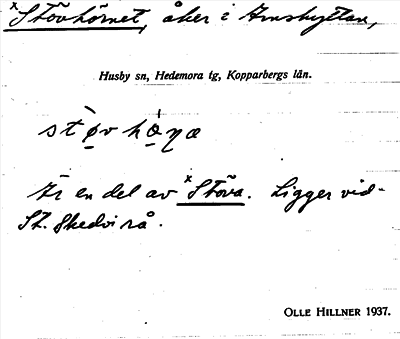 ˣStövhörnet, åker i Amshyttan,
Husby sn, Hedemora tg, Kopparbergs län.
Är en del av ˣStöva. Ligger vid
St. Skedvi rå.
OLLE HILLNER 1937.